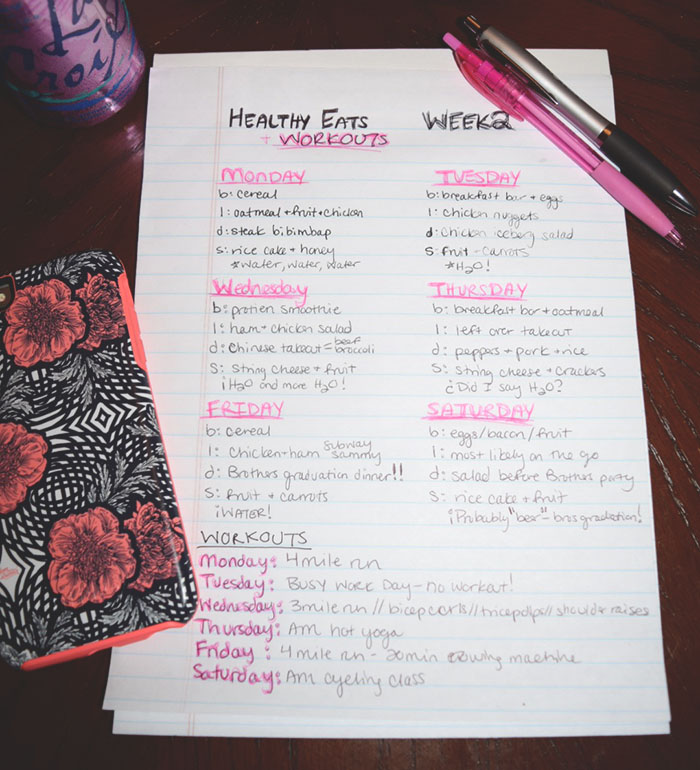 La Croix
HEALTHY EATS
+ WORKOUTS
WEEK2
MONDAY
b: cereal
l: oatmeal + fruit + chicken
d: steak bibimbap
s: rice cake + honey
*water, water, water
TUESDAY
b: breakfast bar + eggs
l: chicken nuggets
d: chicken iceberg salad
s: fruit + carrots
*H2O!
Wednesday
b: protien smoothie
l: ham + chicken salad
d: chinese takeout = beef broccoli
S: string cheese + fruit
¡H2O and more H2O!
THURSDAY
b: breakfast bar + oatmeal
l: left over takeout
d: peppers + pork + rice
S: string cheese + crackers
¿Did I say H2O?
FRIDAY
b: cereal
l: Chicken + ham subway sammy
d: Brothers graduation dinner!!
S: fruit + carrots
¡WATER!
SATURDAY
b: eggs/bacon/fruit
l: most likely on the go
d: salad before Brothers party
S: rice cake + fruit
¡Probably "beer" - bros graduation!
WORKOUTS
Monday: 4 mile run
Tuesday: BUSY WORK DAY - no workout!
Wednesday: 3 mile run // bicep curls // tricep dips // shoulder raises
Thursday: AM hot yoga
Friday: 4 mile run - 20 min rowing machine
Saturday: Am cycling class